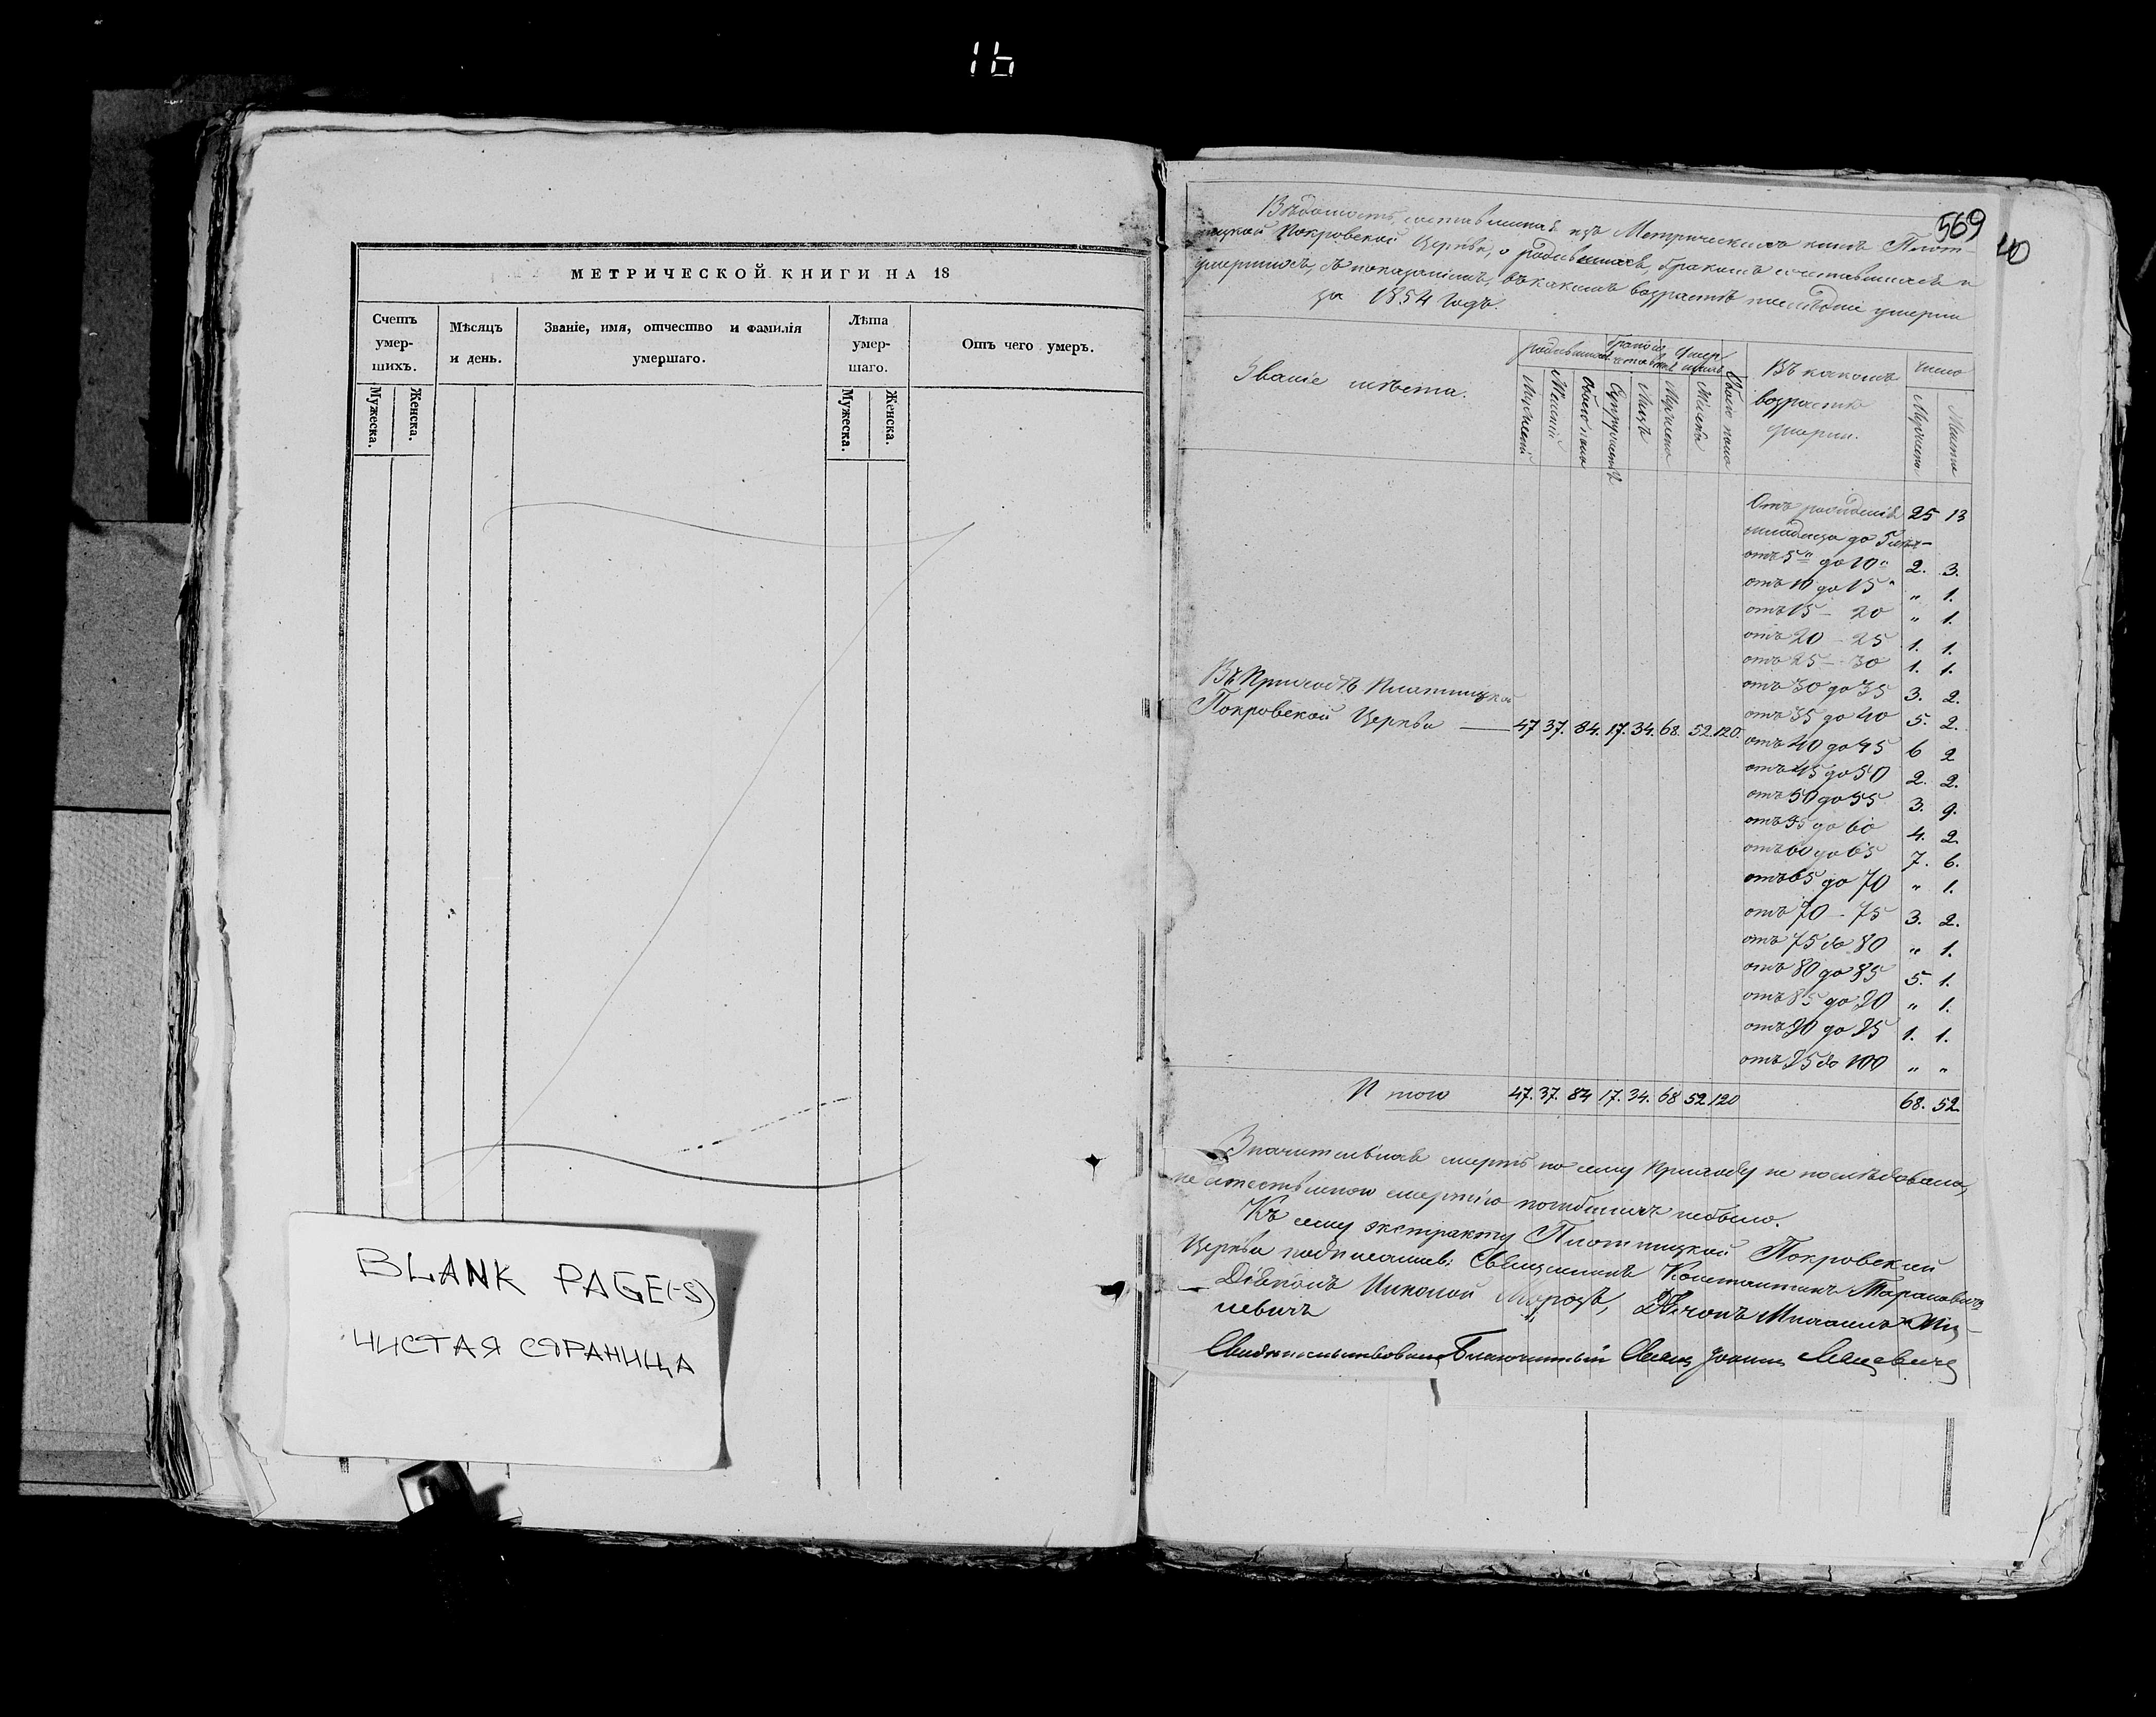 16
МЕТРИЧЕСКОЙ КНИГИ НА 18
Счетъ умер-шихъ.
Мѣсяцъ и день.
Званіе, имя, отчество и фамилія умершаго.
Лѣта умер-шаго.
Отъ чего умеръ.
Мужеска.
Женска.
Мужеска.
Женска.
BLANK PAGE(-S)
ЧИСТАЯ СТРАНИЦА
569
40
Вѣдомость, составленная изъ Метрическихъ книгъ Плот-
ницкой Покровской Церкви, о родившихся, бракомъ сочетавшихся и
умершихъ, съ показаніемъ, въ какомъ возрастѣ послѣдніе умерли
за 1854 годъ.
Званіе мѣста.
родившихся
Умер
Въ какомъ
возрастѣ
умерли.
число
Мужескій
Женскій
Обоего пола
Супружествъ
Лицъ
Мужеска
Женска
Обоего пола
Мужеска
Женска
Отъ рожденія 25 13
младенца до 5 лѣтъ
отъ 5 до 10 2. 3.
отъ 10 до 15 " 1.
отъ 15 - 20 " 1.
отъ 20 - 25 1. 1.
отъ 25 - 30 1. 1.
отъ 30 до 35 3. 2.
отъ 35 до 40 5. 2.
Въ Приходѣ Плотницкой
Покровской Церкви — 47 37. 84. 17. 34. 68. 52. 120.
отъ 40 до 45 6 2
отъ 45 до 50 2. 2.
отъ 50 до 55 3. 9.
отъ 55 до 60 4. 2.
отъ 60 до 65 7. 6.
отъ 65 до 70 " 1.
отъ 70 - 75 3. 2.
отъ 75 до 80 " 1.
отъ 80 до 85 5. 1.
отъ 85 до 90 " 1.
отъ 90 до 95 1. 1.
отъ 95 до 100 " "
Итого 47. 37. 84 17. 34. 68 52 120 68. 52.
смерть по сему Приходу не послѣдовало,
неестественною смертію погибшихъ небыло.
Къ сему экстракту Плотницкой Покровской
Церкви подписались: Священникъ Константинъ Тарановичъ
Дьячокъ Николай Морозъ, Дьячокъ Михаилъ
невичъ
Свидѣтельствовалъ Благочинный Свящ Іоаннъ